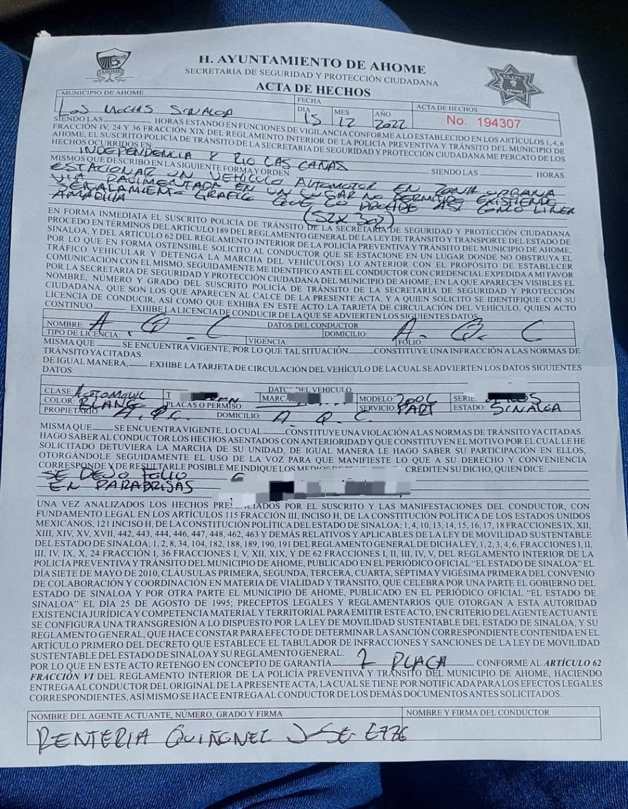 H. AYUNTAMIENTO DE AHOME
SECRETARIA DE SEGURIDAD Y PROTECCIÓN CIUDADANA
ACTA DE HECHOS
MUNICIPIO DE AHOME FECHA ACTA DE HECHOS
LOS MOCHIS SINALOA DÍA 15 MES 12 AÑO 2022 No. 194307
SIENDO LAS HORAS ESTANDO EN FUNCIONES DE VIGILANCIA CONFORME A LO ESTABLECIDO EN LOS ARTÍCULOS 1, 4, 8
FRACCIÓN IV, 24 Y 36 FRACCIÓN XIX DEL REGLAMENTO INTERIOR DE LA POLICÍA PREVENTIVA Y TRÁNSITO DEL MUNICIPIO DE
AHOME, EL SUSCRITO POLICÍA DE TRÁNSITO DE LA SECRETARÍA DE SEGURIDAD Y PROTECCIÓN CIUDADANA ME PERCATO DE LOS
HECHOS OCURRIDOS EN INDEPENDENCIA Y RIO LAS CAÑAS SIENDO LAS HORAS
MISMOS QUE DESCRIBO EN LA SIGUIENTE FORMA Y ORDEN
ESTACIONAR UN VEHICULO AUTOMOTOR EN ZONA URBANA
VIA PAVIMENTADA EN UN LUGAR NO PERMITIDO EXISTIENDO
SEÑALAMIENTO GRAFICO QUE LO ASI COMO LINEA
AMARILLA
EN FORMA INMEDIATA EL SUSCRITO POLICÍA DE TRÁNSITO DE LA SECRETARÍA DE SEGURIDAD Y PROTECCIÓN CIUDADANA
PROCEDO EN TERMINOS DEL ARTICULO 189 DEL REGLAMENTO GENERAL DE LA LEY DE TRÁNSITO Y TRANSPORTE DEL ESTADO DE
SINALOA, Y DEL ARTÍCULO 62 DEL REGLAMENTO INTERIOR DE LA POLICÍA PREVENTIVA Y TRÁNSITO DEL MUNICIPIO DE AHOME,
POR LO QUE EN FORMA OSTENSIBLE SOLICITO AL CONDUCTOR QUE SE ESTACIONE EN UN LUGAR DONDE NO OBSTRUYA EL
TRÁFICO VEHICULAR Y DETENGA LA MARCHA DEL VEHÍCULO(S) LO ANTERIOR CON EL PROPÓSITO DE ESTABLECER
COMUNICACIÓN CON EL MISMO, SEGUIDAMENTE ME IDENTIFICO ANTE EL CONDUCTOR CON CREDENCIAL EXPEDIDA A MI FAVOR
POR LA SECRETARÍA DE SEGURIDAD Y PROTECCIÓN CIUDADANA DEL MUNICIPIO DE AHOME, EN LA QUE APARECEN VISIBLES EL
NOMBRE, NÚMERO Y GRADO DEL SUSCRITO POLICÍA DE TRÁNSITO DE LA SECRETARÍA DE SEGURIDAD Y PROTECCIÓN
CIUDADANA, QUE SON LOS QUE APARECEN AL CALCE DE LA PRESENTE ACTA, Y A QUIEN SOLICITO SE IDENTIFIQUE CON SU
LICENCIA DE CONDUCIR, ASÍ COMO QUE EXHIBA EN ESTE ACTO LA TARJETA DE CIRCULACIÓN DEL VEHÍCULO, QUIEN ACTO
CONTINUO EXHIBE LA LICENCIA DE CONDUCIR DE LA QUE SE ADVIERTEN LOS SIGUIENTES DATOS
DATOS DEL CONDUCTOR
NOMBRE A. Q. C DOMICILIO: A. Q. C
TIPO DE LICENCIA: VIGENCIA FOLIO
MISMA QUE SE ENCUENTRA VIGENTE, POR TAL SITUACIÓN CONSTITUYE UNA INFRACCIÓN A LAS NORMAS DE
TRÁNSITO YA CITADAS
DE IGUAL MANERA, EXHIBE LA TARJETA DE CIRCULACIÓN DEL VEHÍCULO DE LA CUAL SE ADVIERTEN LOS DATOS SIGUIENTES
DATOS
DATOS DEL VEHÍCULO
CLASE: MODELO: 2006 SERIE:
COLOR: BLANC PLACAS O PERMISO SERVICIO: PART ESTADO: SINALOA
PROPIETARIO A. Q. C DOMICILIO A. Q. C.
MISMA QUE SE ENCUENTRA VIGENTE, LO CUAL CONSTITUYE UNA VIOLACIÓN A LAS NORMAS DE TRÁNSITO YA CITADAS
HAGO SABER AL CONDUCTOR LOS HECHOS ASENTADOS CON ANTERIORIDAD Y QUE CONSTITUYEN EL MOTIVO POR EL CUAL LE HE
SOLICITADO DETUVIERA LA MARCHA DE SU UNIDAD, DE IGUAL MANERA LE HAGO SABER SU PARTICIPACIÓN EN ELLOS,
OTORGÁNDOLE SEGUIDAMENTE EL USO DE LA VOZ PARA QUE MANIFIESTE LO QUE A SU DERECHO Y CONVENIENCIA
CORRESPONDE Y DE RESULTARLE POSIBLE ME INDIQUE LOS CREDITEN SU DICHO, QUIEN DICE
SE DEJO FOLIO
EN PARABRISAS
UNA VEZ ANALIZADOS LOS HECHOS POR EL SUSCRITO Y LAS MANIFESTACIONES DEL CONDUCTOR, CON
FUNDAMENTO LEGAL EN LOS ARTÍCULOS 115 FRACCIÓN III, INCISO H, DE LA CONSTITUCIÓN POLÍTICA DE LOS ESTADOS UNIDOS
MEXICANOS, 121 INCISO H, DE LA CONSTITUCIÓN POLÍTICA DEL ESTADO DE SINALOA; 1, 4, 10, 13, 14, 15, 16, 17, 18 FRACCIONES IX, XII,
XIII, XIV, XV, XVII, 442, 443, 444, 446, 447, 448, 462, 463 Y DEMÁS RELATIVOS Y APLICABLES DE LA LEY DE MOVILIDAD SUSTENTABLE
DEL ESTADO DE SINALOA, 1, 2, 8, 34, 104, 182, 188, 189, 190, 191 DEL REGLAMENTO GENERAL DE DICHA LEY, 1, 2, 3, 4, 6 FRACCIONES I, II,
III, IV, IX, X, 24 FRACCIÓN I, 36 FRACCIONES I, V, XII, XIX, Y DE 62 FRACCIONES I, II, III, IV, V, DEL REGLAMENTO INTERIOR DE LA
POLICÍA PREVENTIVA Y TRÁNSITO DEL MUNICIPIO DE AHOME, PUBLICADO EN EL PERIÓDICO OFICIAL "EL ESTADO DE SINALOA" EL
DÍA SIETE DE MAYO DE 2010, CLAUSULAS PRIMERA, SEGUNDA, TERCERA, CUARTA, SÉPTIMA Y VIGÉSIMA PRIMERA DEL CONVENIO
DE COLABORACIÓN Y COORDINACIÓN EN MATERIA DE VIALIDAD Y TRÁNSITO, QUE CELEBRA POR UNA PARTE EL GOBIERNO DEL
ESTADO DE SINALOA Y POR OTRA PARTE EL MUNICIPIO DE AHOME, PUBLICADO EN EL PERIÓDICO OFICIAL "EL ESTADO DE
SINALOA" EL DÍA 25 DE AGOSTO DE 1995; PRECEPTOS LEGALES Y REGLAMENTARIOS QUE OTORGAN A ESTA AUTORIDAD
EXISTENCIA JURÍDICA Y COMPETENCIA MATERIAL Y TERRITORIAL PARA EMITIR ESTE ACTO, EN CRITERIO DEL AGENTE ACTUANTE
SE CONFIGURA UNA TRANSGRESIÓN A LO DISPUESTO POR LA LEY DE MOVILIDAD SUSTENTABLE DEL ESTADO DE SINALOA, Y SU
REGLAMENTO GENERAL, QUE HACE CONSTAR PARA EFECTO DE DETERMINAR LA SANCIÓN CORRESPONDIENTE CONTENIDA EN EL
ARTÍCULO PRIMERO DEL DECRETO QUE ESTABLECE EL TABULADOR DE INFRACCIONES Y SANCIONES DE LA LEY DE MOVILIDAD
SUSTENTABLE DEL ESTADO DE SINALOA Y SU REGLAMENTO GENERAL.
POR LO QUE EN ESTE ACTO RETENGO EN CONCEPTO DE GARANTÍA 1 PLACA CONFORME AL ARTÍCULO 62
FRACCIÓN VI DEL REGLAMENTO INTERIOR DE LA POLICÍA PREVENTIVA Y TRÁNSITO DEL MUNICIPIO DE AHOME, HACIENDO
ENTREGA AL CONDUCTOR DEL ORIGINAL DE LA PRESENTE ACTA, LA CUAL SE TIENE POR NOTIFICADA PARA LOS EFECTOS LEGALES
CORRESPONDIENTES, ASÍ MISMO SE HACE ENTREGA AL CONDUCTOR DE LOS DEMÁS DOCUMENTOS ANTES SOLICITADOS.
NOMBRE DEL AGENTE ACTUANTE, NÚMERO, GRADO Y FIRMA NOMBRE Y FIRMA DEL CONDUCTOR
RENTERIA QUIÑONEZ JOSE